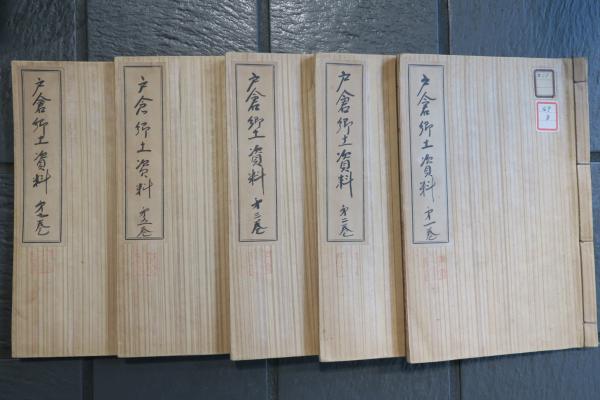 戸倉郷土資料 㐧一巻
戸倉郷土資料 㐧二巻
戸倉郷土資料 㐧三巻
戸倉郷土資料
戸倉郷土資料